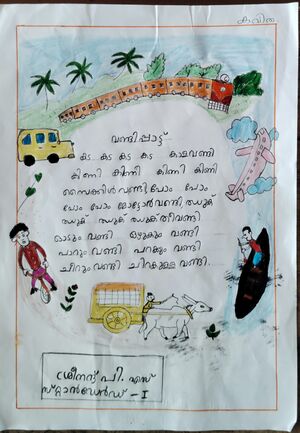 കവിത
വണ്ടിപ്പാട്ട്
കട കട കട കട കാളവണ്ടി
കിണി കിണി കിണി കിണി
സൈക്കിൾ വണ്ടി പോം പോം
പോം പോം മോട്ടോർ വണ്ടി ഝുക്
ഝുക് ഝുക് ഝുക് തീവണ്ടി
ഓടും വണ്ടി ഒഴുകും വണ്ടി
പാറും വണ്ടി പറക്കും വണ്ടി
ചീറും വണ്ടി ചിറകുള്ള വണ്ടി.
ശ്രീനന്ദ് പി. എസ്
സ്റ്റാൻഡേർഡ് - I